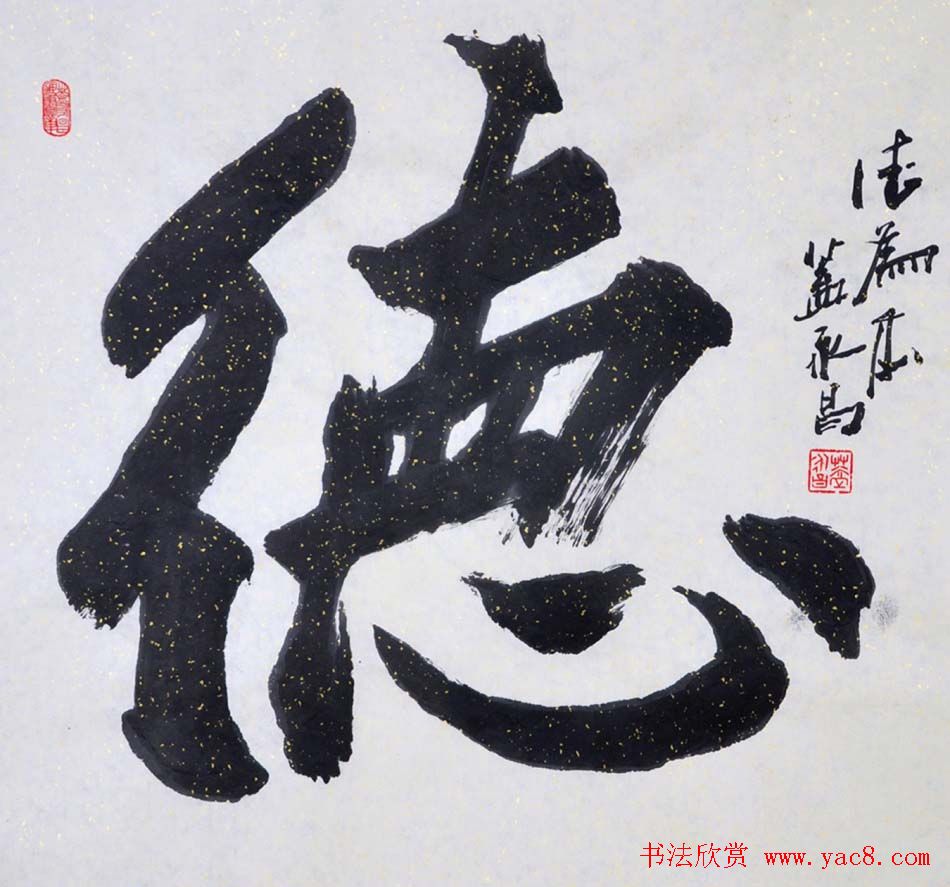 德
德為
蓋永昌
书法欣赏 www.yac8.com